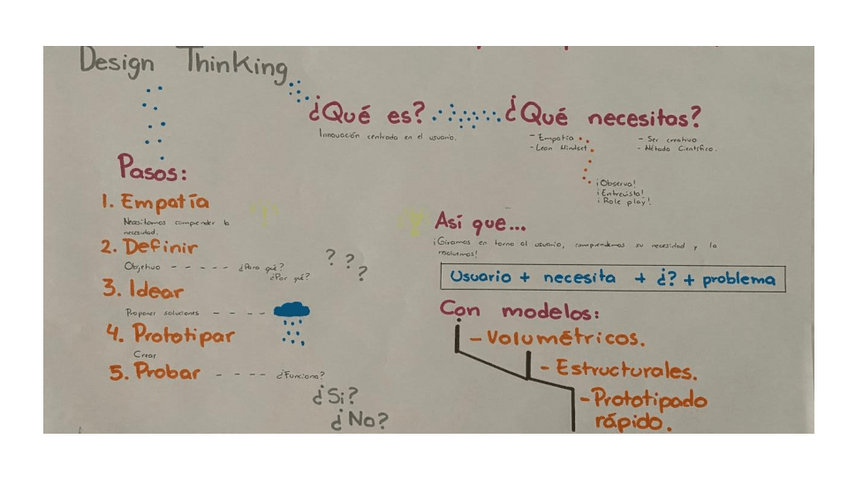 Design Thinking
¿Qué es?
Innovación centrada en el usuario.
¿Qué necesitas?
- Empatía
- Lean Mindset
- Ser creativo
- Método Científico.
¡Observa!
¡Entrevista!
¡Role play!
Pasos:
1. Empatía
Necesitamos comprender la
necesidad.
2. Definir
Objetivo - - - - - ¿Para qué?
¿Por qué?
? ? ?
3. Idear
Proponer soluciones - - - -
4. Prototipar
Crear
5. Probar - - - - ¿Funciona?
¿Si?
¿No?
Así que...
¡Giramos en torno al usuario, comprendemos su necesidad y la
resolvemos!
Usuario + necesita + ¿? + problema
Con modelos:
- Volumétricos.
- Estructurales.
- Prototipado
rápido.